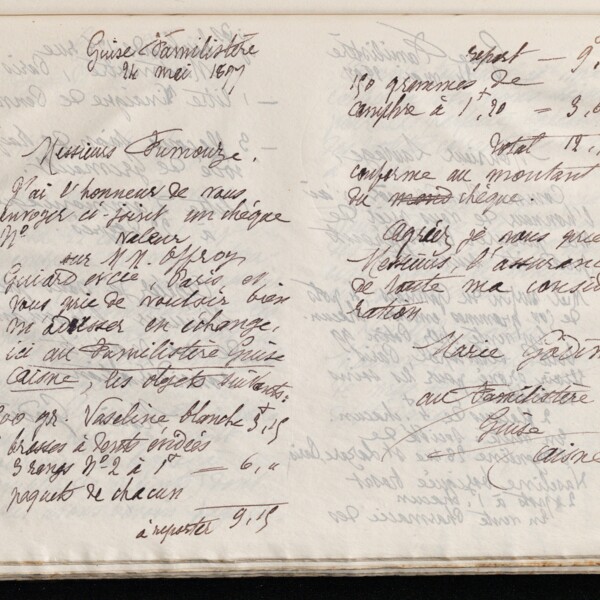 Guise Familistère
24 mai 1897
Messieurs Fumouze,
J'ai l'honneur de vous
envoyer ci-joint un chèque
N° valeur
sur MM. Offroy
Guiard et Cie Paris, et
vous prie de vouloir bien
m'adresser en échange,
ici au Familistère Guise
Aisne, les objets suivants:
gr. Vaseline blanche 3,15
brosses à dents évidées
3 rangs N° 2 à 1f = 6,"
paquets de chacun
à reporter 9,15
report — 9,
150 grammes de
camphre à 1f,20 = 3,
Total 12,
conforme au montant
du mond chèque.
Agréer je vous prie
Messieurs, l'assurance
de toute ma considé
ration
Marie Godin
au Familistère
Guise
Aisne